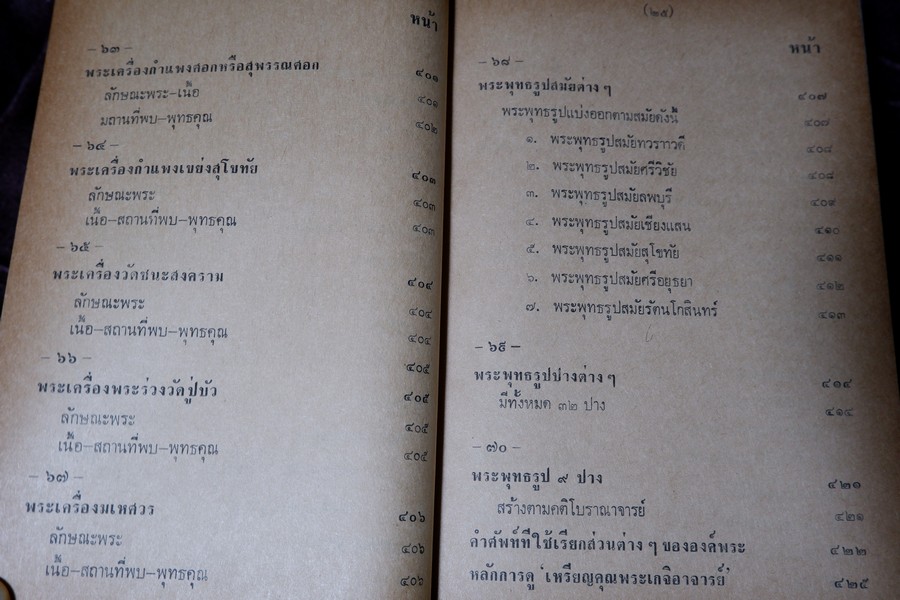 หน้า
– ๖๓ –
พระเครื่องกำแพงศอกหรือสุพรรณศอก ๔๐๑
ลักษณะพระ–เนื้อ ๔๐๑
มถานที่พบ–พุทธคุณ ๔๐๒
– ๖๔ –
พระเครื่องกำแพงเขย่งสุโขทัย ๔๐๓
ลักษณะพระ ๔๐๓
เนื้อ–สถานที่พบ–พุทธคุณ ๔๐๓
– ๖๕ –
พระเครื่องวัดชนะสงคราม ๔๐๔
ลักษณะพระ ๔๐๔
เนื้อ–สถานที่พบ–พุทธคุณ ๔๐๔
– ๖๖ – ๔๐๕
พระเครื่องพระร่วงวัดปู่บัว ๔๐๕
ลักษณะพระ ๔๐๕
เนื้อ–สถานที่พบ–พุทธคุณ ๔๐๕
– ๖๗ –
พระเครื่องมเหศวร ๔๐๖
ลักษณะพระ ๔๐๖
เนื้อ–สถานที่พบ–พุทธคุณ ๔๐๖
(๒๕)
หน้า
– ๖๘ –
พระพุทธรูปสมัยต่าง ๆ ๔๐๗
พระพุทธรูปแบ่งออกตามสมัยดังนี้ ๔๐๗
๑. พระพุทธรูปสมัยทวราวดี ๔๐๘
๒. พระพุทธรูปสมัยศรีวิชัย ๔๐๘
๓. พระพุทธรูปสมัยลพบุรี ๔๐๙
๔. พระพุทธรูปสมัยเชียงแสน ๔๑๐
๕. พระพุทธรูปสมัยสุโขทัย ๔๑๑
๖. พระพุทธรูปสมัยศรีอยุธยา ๔๑๒
๗. พระพุทธรูปสมัยรัตนโกสินทร์ ๔๑๓
– ๖๙ –
พระพุทธรูปปางต่าง ๆ ๔๑๔
มีทั้งหมด ๓๒ ปาง ๔๑๔
– ๗๐ –
พระพุทธรูป ๙ ปาง ๔๒๑
สร้างตามคติโบราณาจารย์ ๔๒๑
คำศัพท์ที่ใช้เรียกส่วนต่าง ๆ ขององค์พระ ๔๒๒
หลักการดู ‘เหรียญคุณพระเกจิอาจารย์’ ๔๒๕